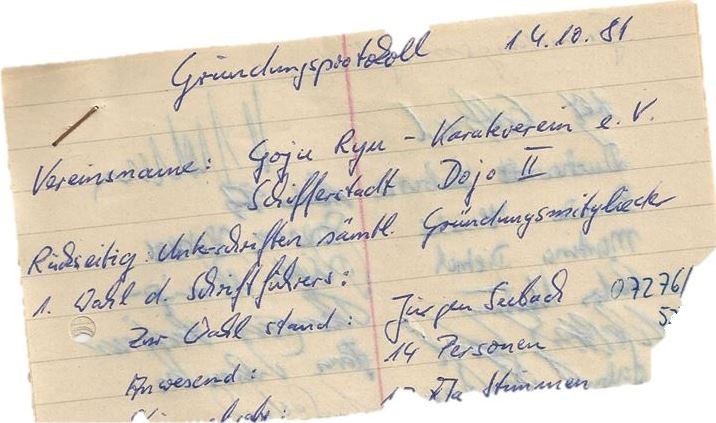 Gründungsprotokoll 14.10.81
Vereinsname: Goju Ryu - Karateverein e.V.
Schifferstadt Dojo II
Rückseitig Unterschriften sämtl. Gründungsmitglieder
1. Wahl d. Schriftführers:
Zur Wahl stand: Jürgen Seebach 07276/
Anwesend: 14 Personen
Stimmen